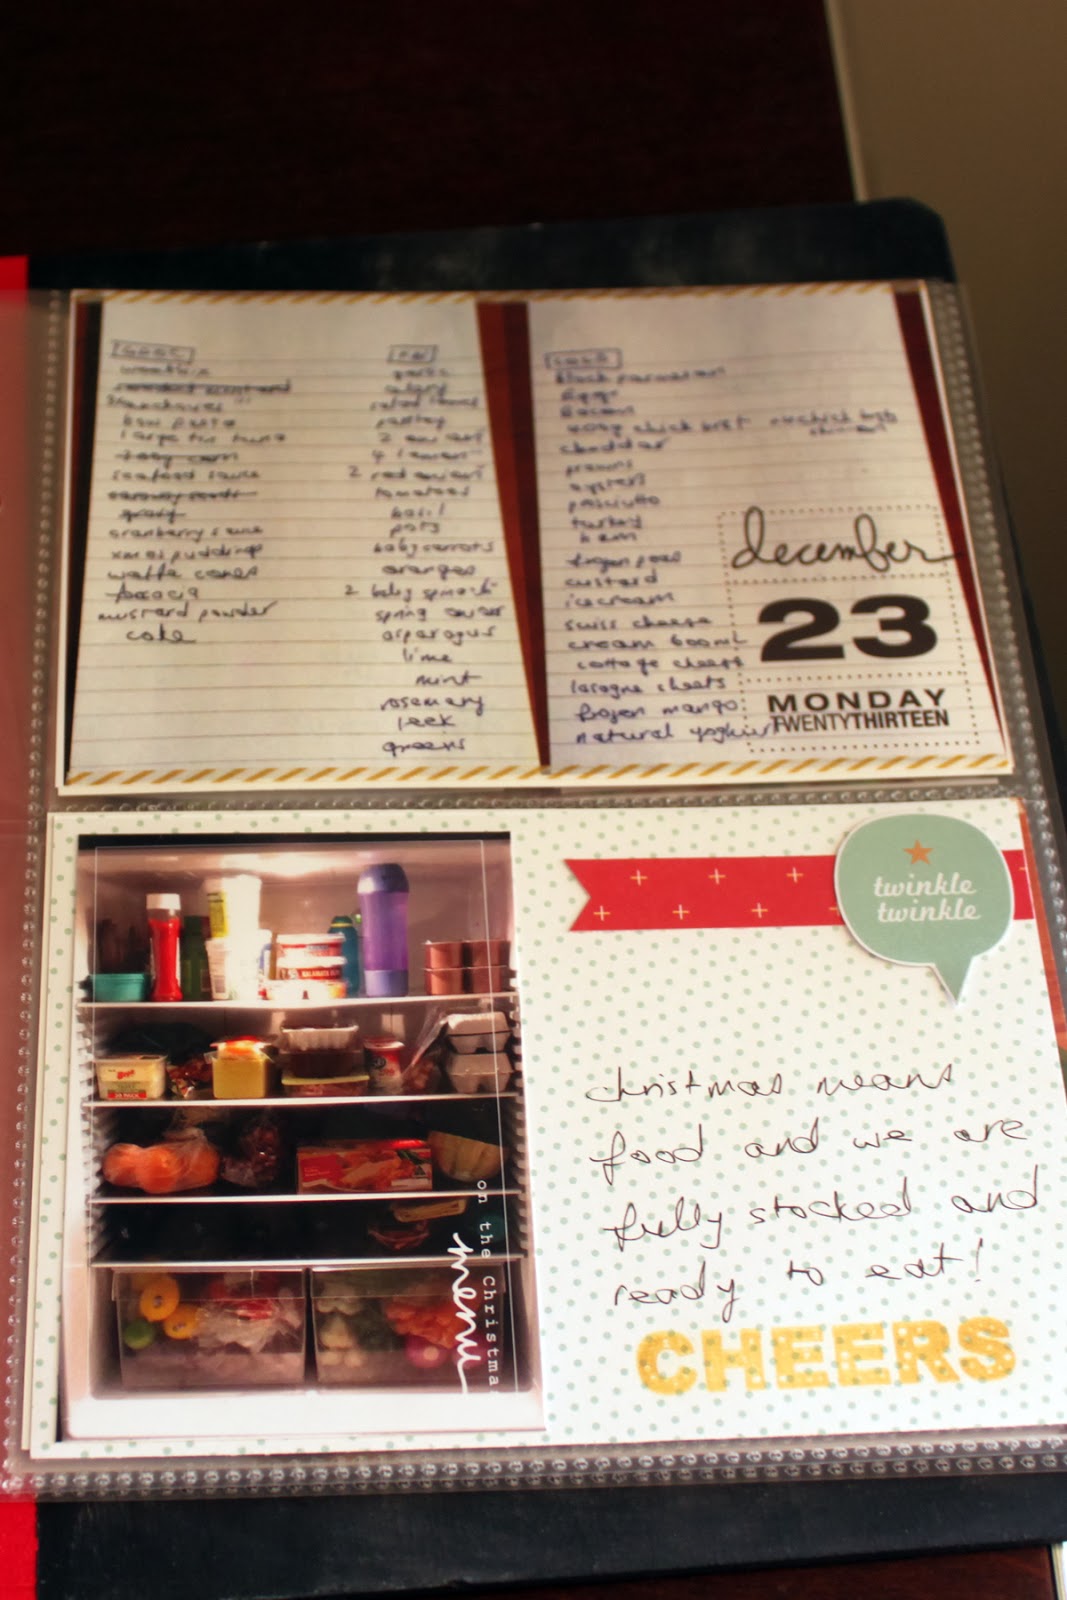 weetbix
bow pasta
large tin tuna
seafood sauce
cranberry sauce
xmas puddings
waffle cones
mustard powder
coke
F+V
garlic
celery
parsley
4 lemon
2 red onions
tomatoes
basil
pots
baby carrots
oranges
2 baby spinach
spring onion
asparagus
lime
mint
rosemary
leek
greens
COLD
Block parmesan
Eggs
Bacon
cheddar
prawns
oysters
turkey
ham
frozen peas
custard
icecream
swiss cheese
cream 600mL
cottage cheese
lasagne sheets
frozen mango
natural yoghurt
december
23
MONDAY
TWENTYTHIRTEEN
twinkle
twinkle
on the Christmas
menu
christmas means
food and we are
fully stocked and
ready to eat!
CHEERS